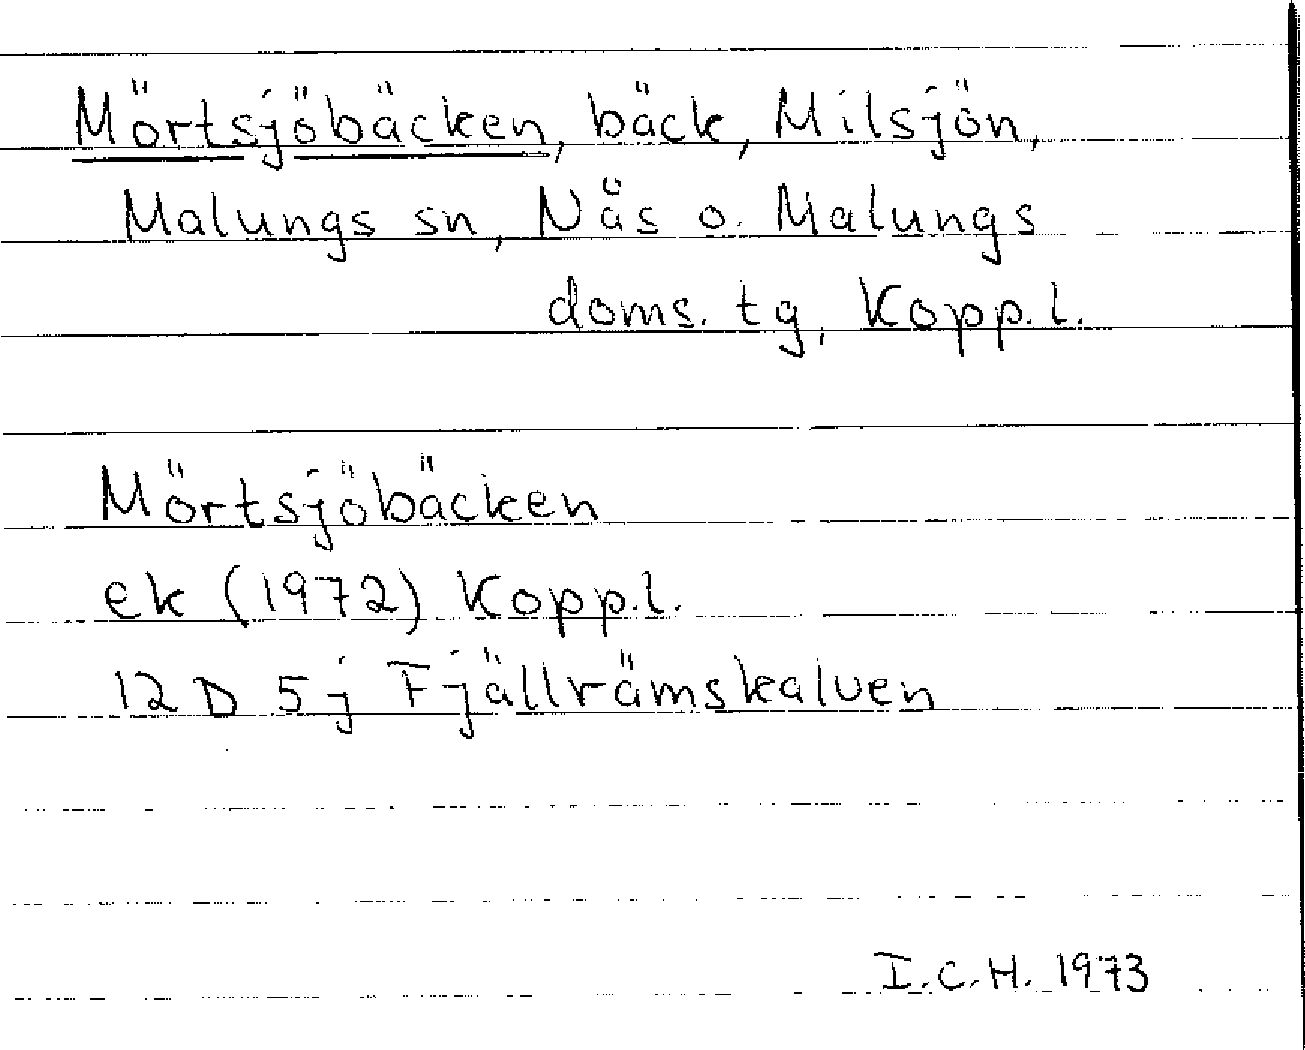 Mörtsjöbäcken, bäck, Milsjön,
Malungs sn, Näs o. Malungs
doms. tg, Kopp.l.
Mörtsjöbäcken
ek (1972) Kopp.l.
12 D 5j Fjällrämskalven
I.C.H. 1973